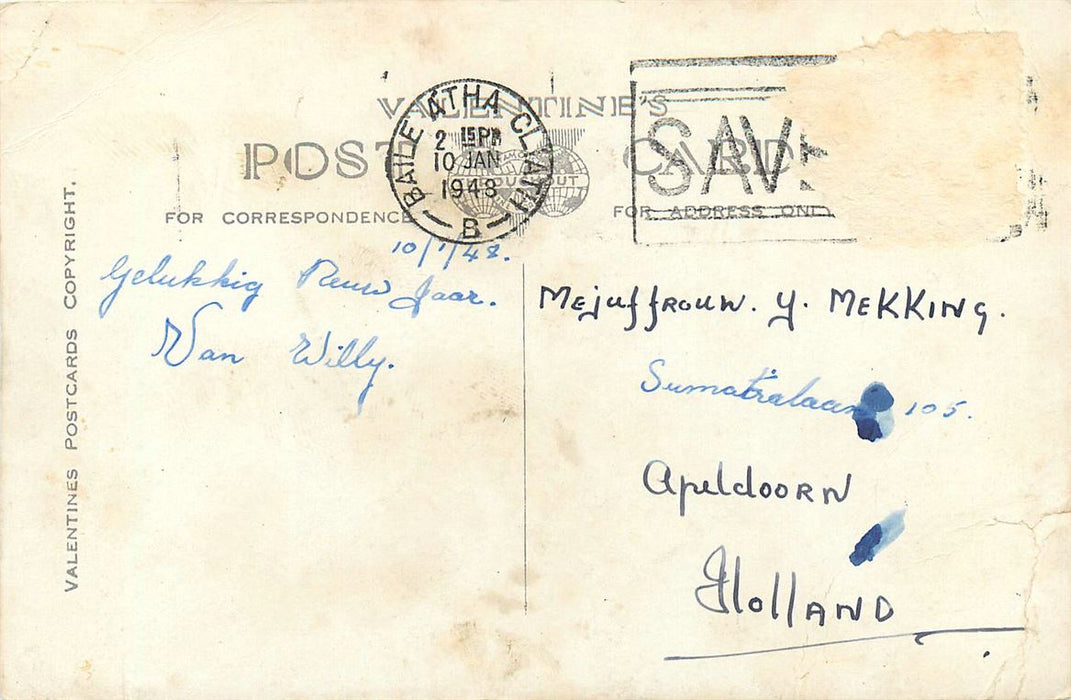 VALENTINE'S
POST CARD
FOR CORRESPONDENCE
FOR ADDRESS ONLY
BAILE ATHA CLIATH
2 15 PM
10 JAN
1948
B
SAVE
10/1/48.
Gelukkig Nieuw Jaar.
Van Willy.
Mejuffrouw. Y. MEKKING.
Sumatralaan 105.
Apeldoorn
Holland
VALENTINES POSTCARDS COPYRIGHT.